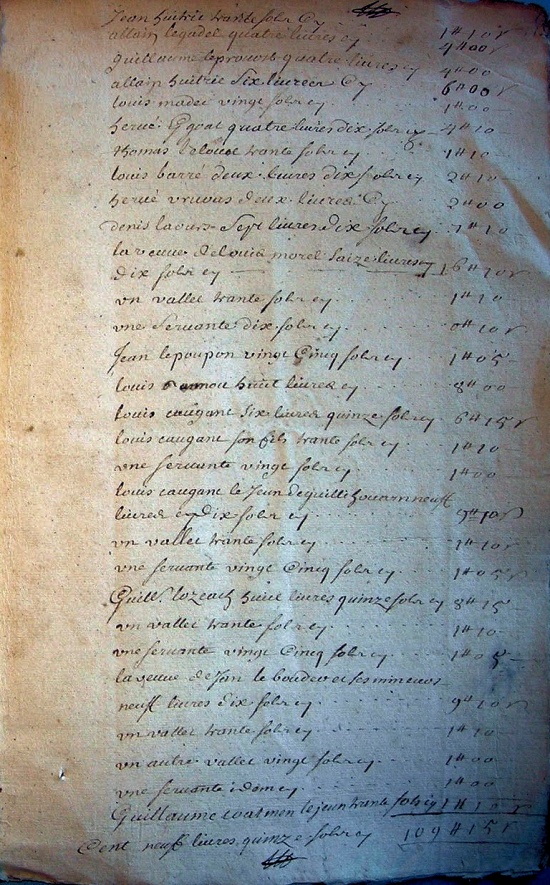 Jean huitric trante solz Cy 1# 10 s
allain legadel quatre livres cy 4# 00 s
guillaume leprovost quatre livres cy 4# 00
allain huitric six livres Cy 6# 00 s
louis madec vingt solz cy 1# 00
hervé Ggoat quatre livres dix solz cy 4# 10
thomas trante solz cy 1# 10
louis barre deux livres dix solz cy 2# 10
hervé deux livres Cy 2# 00
denis laours sept livres dix solz cy 7# 10
la veuve de louis morel saize livres
dix solz cy 16# 10 s
un vallet trante solz cy 1# 10
une servante dix solz cy 0# 10 s
Jean lepoupon vingt Cinq solz cy 1# 05
louis huit livres cy 8# 00
louis caugant six livres quinze solz cy 6# 15 s
louis caugant son fils trante solz cy 1# 10
une servante vingt solz cy 1# 00
louis caugant le Jeun neuff
livres dix solz cy 9# 10 s
un vallet trante solz cy 1# 10 s
une servante vingt Cinq solz cy 1# 05 s
Guill. lozeach huit livres quinze solz cy 8# 15
un vallet trante solz cy 1# 10
une servante vingt Cinq solz cy 1# 05
la veuve de Jan le boudec et ses mineurs
neuff livres dix solz cy 9# 10 s
un vallet trante solz cy 1# 10
un autre vallet vingt solz cy 1# 00
une servante idem cy 1# 00
Guillaume coatmen le jeun trante solz cy 1# 10 s
Cent neuff livres quinze solz cy 109# 15 s